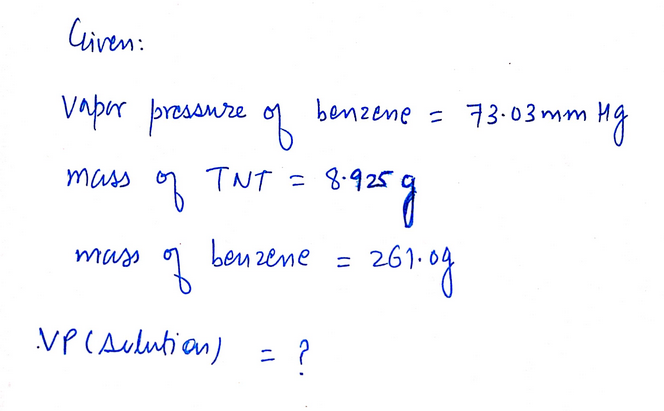 Given:
Vapor pressure of benzene = 73.03 mm Hg
mass of TNT = 8.925 g
mass of benzene = 261.0g
VP (Solution) = ?